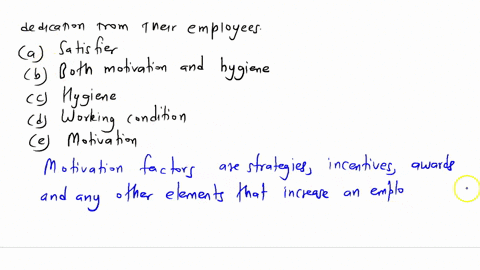 dedication from their employees.
(a) Satisfier
(b) Both motivation and hygiene
(c) Hygiene
(d) Working condition
(e) Motivation
Motivation factors are strategies, incentives, awards
and any other elements that increase an emplo